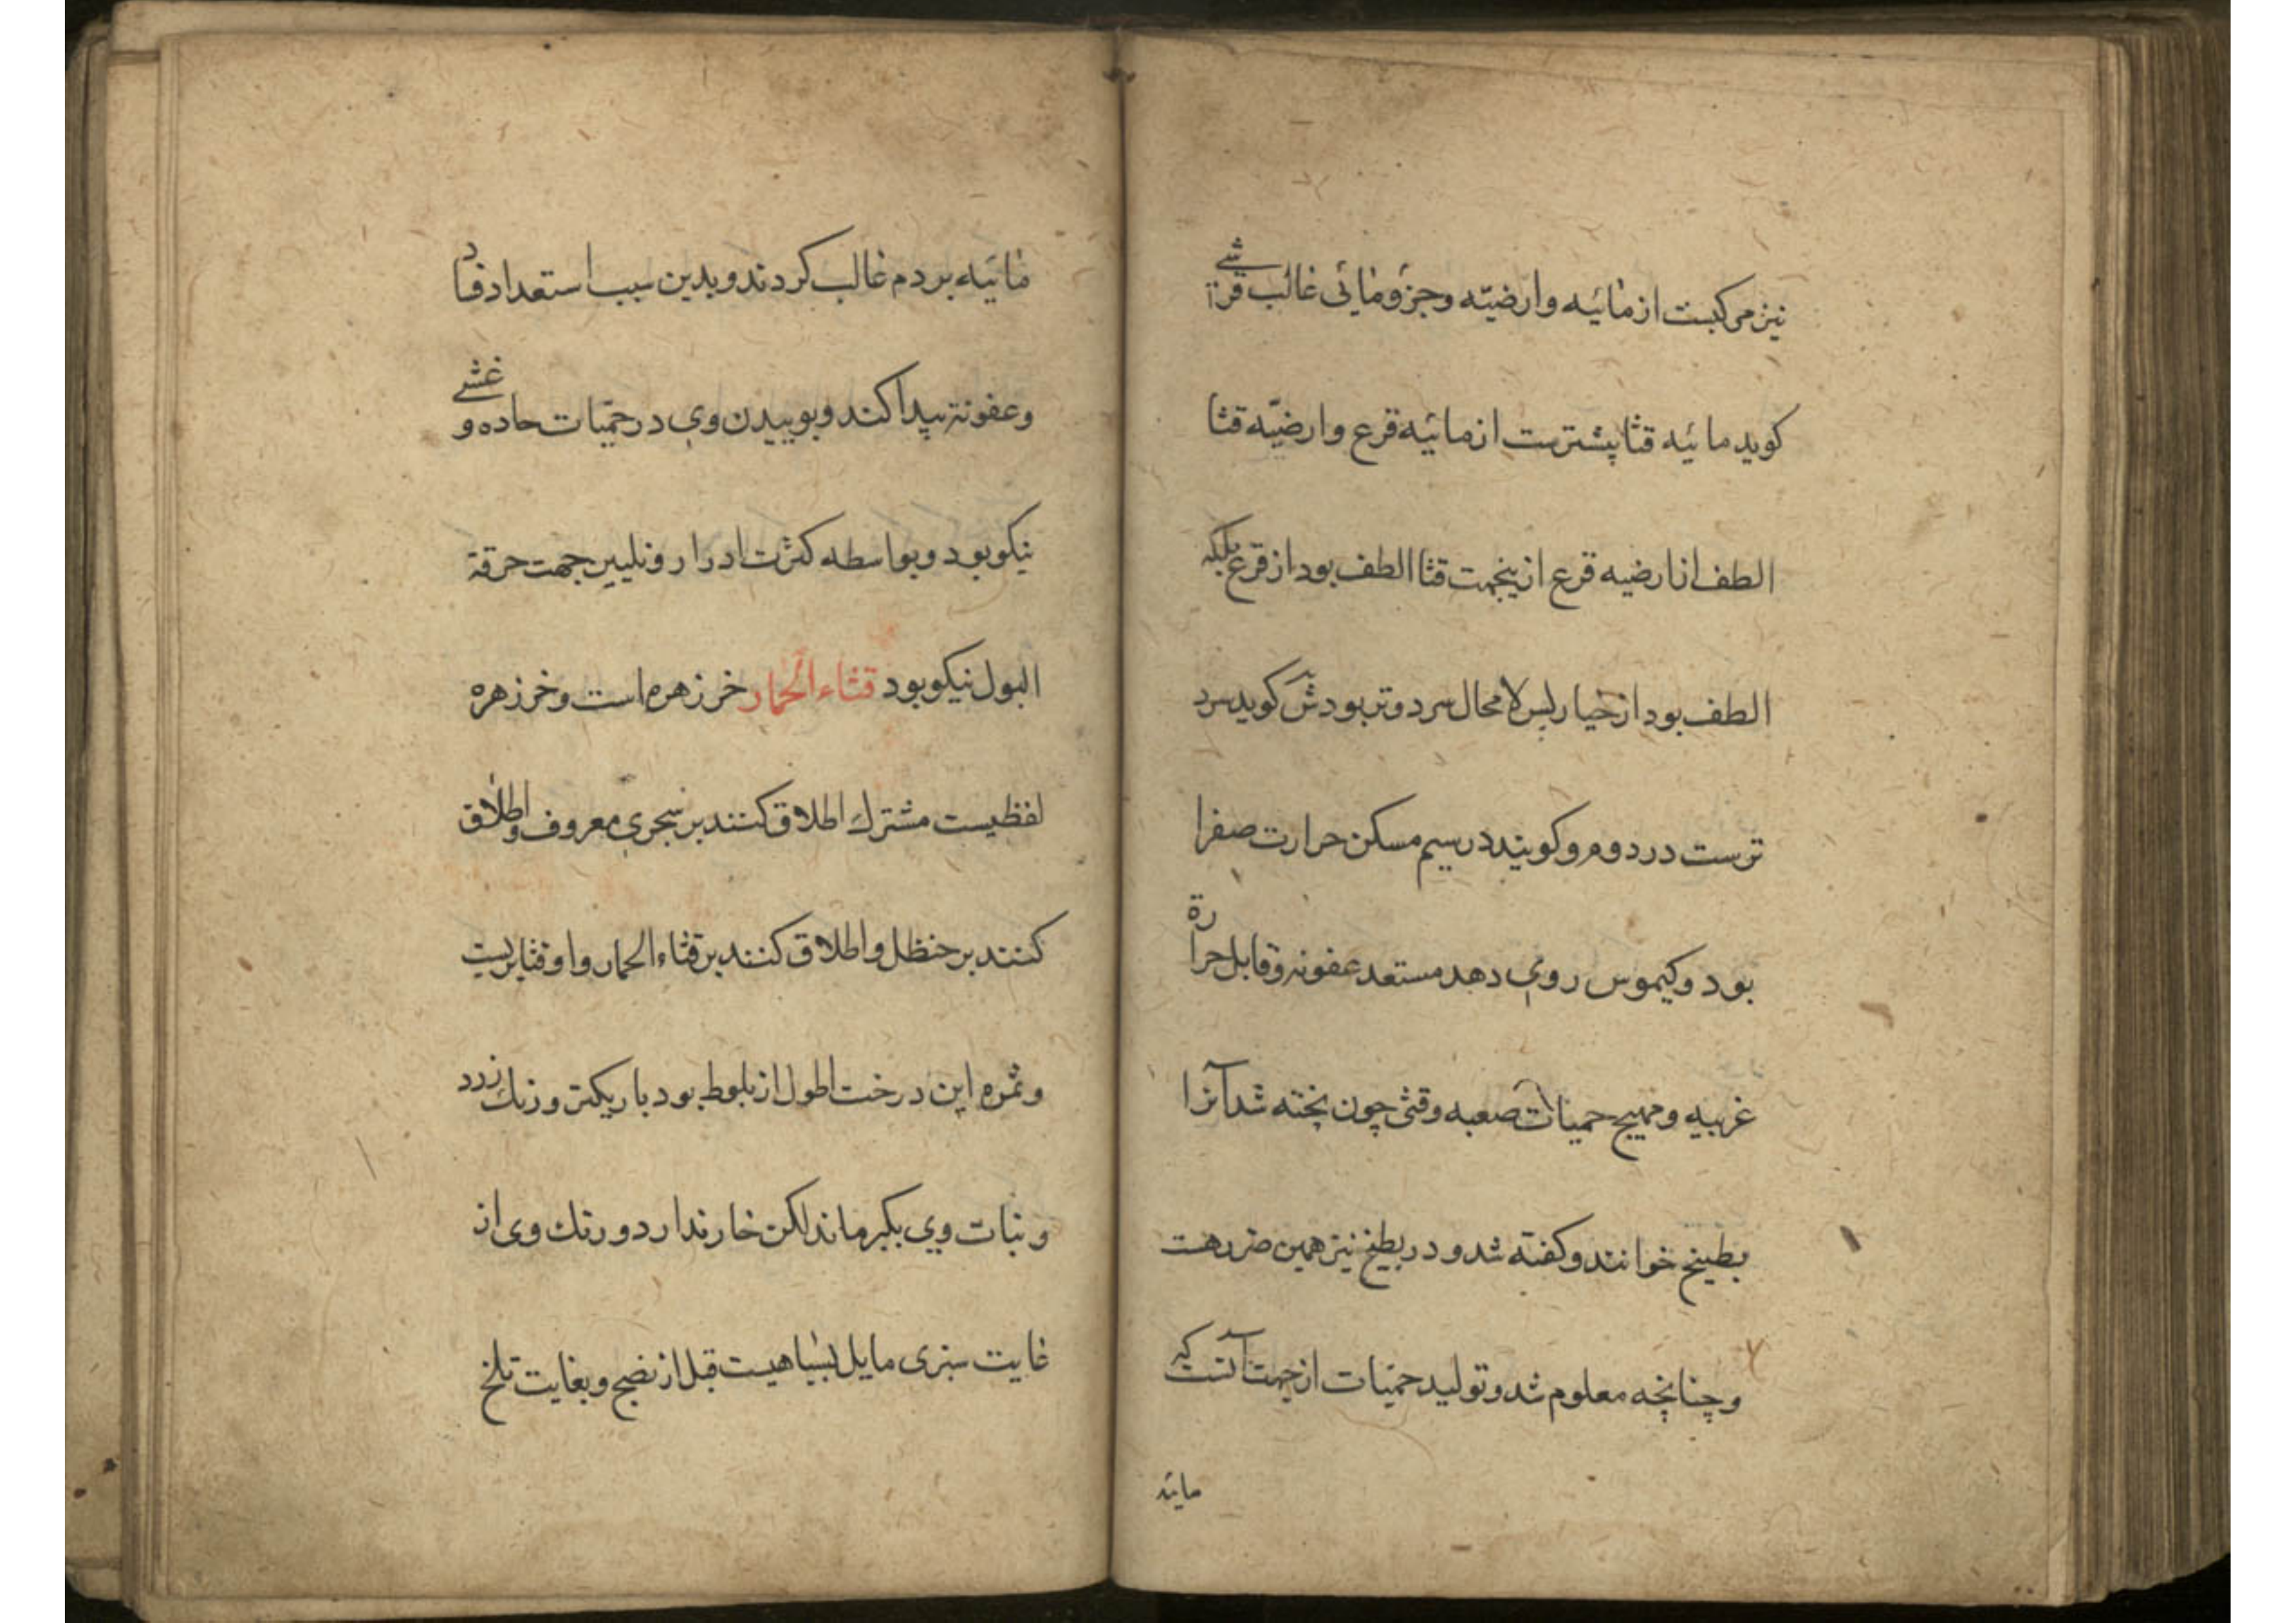 نیز مرکبست از مائیه وارضیّه وجزؤ مائی غالب قرشے
کوید مائیه قثا پیشترست از مائیه قرع وارضیّه قثا
الطف از ارضیه قرع ازینجهت قثا الطف بود از قرع بلکه
الطف بود از خیار پس لا محال سرد وتر بود ش کوید سرد
ترست در دوم وکویند در سیم مسکن حرارت صفرا
بود وکیموس روی دهد مستعد عفونه وقابل حرارة
غریبه ومهیج حمیات صعبه وقثی چون پخته شد آنرا
بطیخ خوانند وکفته شد ودر بطیخ نیز همین ضرر هست
وچنانچه معلوم شد وتولید حمّیات از جهت آنست که
مائیه
مائیه بر دم غالب کردند وبدین سبب استعداد فساد
وعفونة پیدا کند وبوییدن وی در حمّیات حاده وغشے
نیکو بود وبواسطه کثرت ادرار وتلیین جهت حرقة
البول نیکو بود قثاء الحمار خر زهره است وخر زهره
لفظیست مشترك اطلاق کنند بر شجری معروف واطلاق
کنند بر حنظل واطلاق کنند بر قثاء الحمار واو قثا بریست
وثمره این درخت اطول از بلوط بود باریکتر ورنك زرد
ونبات وی بکبر ماند لکن خار ندارد ورنك وی از
غایت سبزی مایل بسیاهیست قبل از نضج وبغایت تلخ